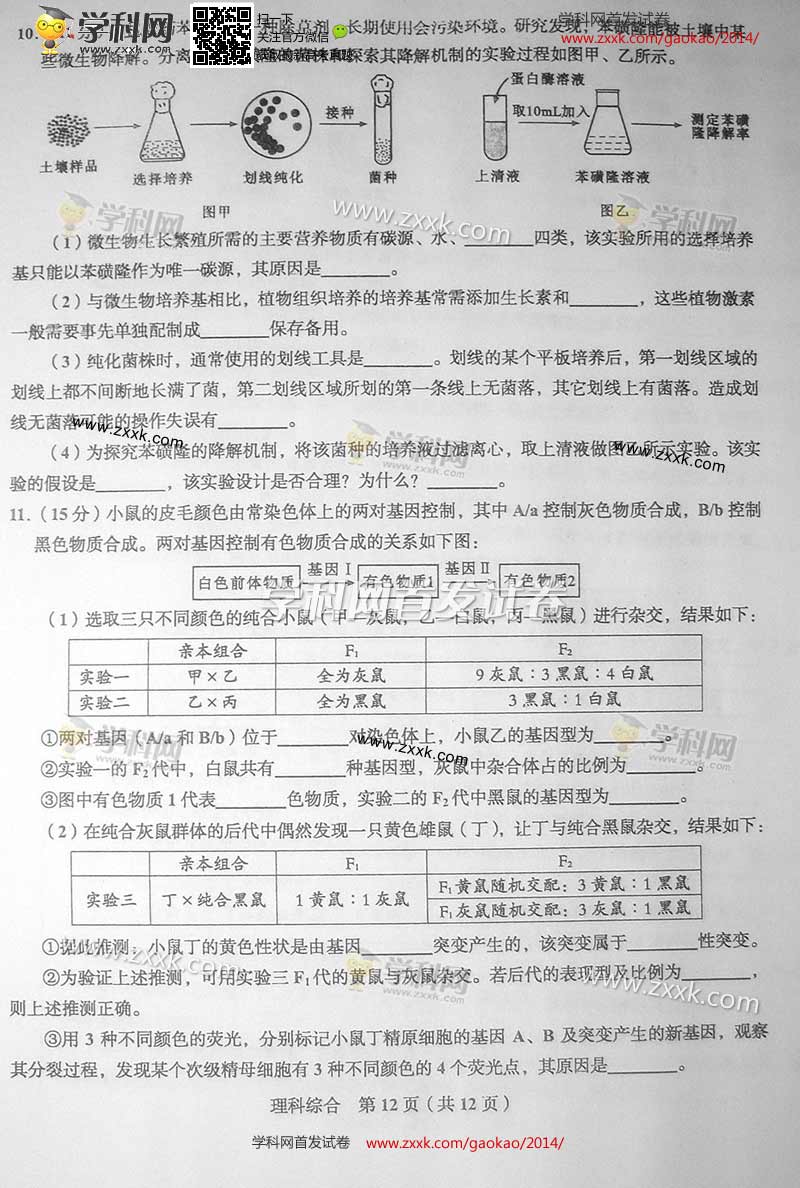 学科网首发试卷
www.zxxk.com/gaokao/2014/
学科网
扫一下
关注官方微信
10. 除草剂，长期使用会污染环境。研究发现，苯磺隆能被土壤中某
些微生物降解。分离 探索其降解机制的实验过程如图甲、乙所示。
土壤样品 选择培养 划线纯化 接种 菌种
蛋白酶溶液
取10mL加入
上清液 苯磺隆溶液 测定苯磺
隆降解率
图甲 图乙
学科网 www.zxxk.com 学科网
（1）微生物生长繁殖所需的主要营养物质有碳源、水、________四类，该实验所用的选择培养
基只能以苯磺隆作为唯一碳源，其原因是________。
（2）与微生物培养基相比，植物组织培养的培养基常需添加生长素和________，这些植物激素
一般需要事先单独配制成________保存备用。
（3）纯化菌株时，通常使用的划线工具是________。划线的某个平板培养后，第一划线区域的
划线上都不间断地长满了菌，第二划线区域所划的第一条线上无菌落，其它划线上有菌落。造成划
线无菌落可能的操作失误有________。
www.zxxk.com 学科网 www.zxxk.com
（4）为探究苯磺隆的降解机制，将该菌种的培养液过滤离心，取上清液做图乙所示实验。该实
验的假设是________，该实验设计是否合理？为什么？________。
11.（15 分）小鼠的皮毛颜色由常染色体上的两对基因控制，其中 A/a 控制灰色物质合成，B/b 控制
黑色物质合成。两对基因控制有色物质合成的关系如下图：
白色前体物质 基因Ⅰ 有色物质1 基因Ⅱ 有色物质2
学科网首发试卷
（1）选取三只不同颜色的纯合小鼠（甲—灰鼠，乙—白鼠，丙—黑鼠）进行杂交，结果如下：
亲本组合 F₁ F₂
实验一 甲×乙 全为灰鼠 9 灰鼠：3 黑鼠：4 白鼠
实验二 乙×丙 全为黑鼠 3 黑鼠：1 白鼠
①两对基因（A/a 和 B/b）位于________对染色体上，小鼠乙的基因型为________。
学科网 www.zxxk.com 学科网
②实验一的 F₂ 代中，白鼠共有________种基因型，灰鼠中杂合体占的比例为________。
③图中有色物质 1 代表________色物质，实验二的 F₂ 代中黑鼠的基因型为________。
（2）在纯合灰鼠群体的后代中偶然发现一只黄色雄鼠（丁），让丁与纯合黑鼠杂交，结果如下：
亲本组合 F₁ F₂
实验三 丁×纯合黑鼠 1 黄鼠：1 灰鼠 F₁黄鼠随机交配：3 黄鼠：1 黑鼠
F₁灰鼠随机交配：3 灰鼠：1 黑鼠
①据此推测：小鼠丁的黄色性状是由基因________突变产生的，该突变属于________性突变。
②为验证上述推测，可用实验三 F₁ 代的黄鼠与灰鼠杂交。若后代的表现型及比例为________，
则上述推测正确。
www.zxxk.com 学科网 www.zxxk.com
③用 3 种不同颜色的荧光，分别标记小鼠丁精原细胞的基因 A、B 及突变产生的新基因，观察
其分裂过程，发现某个次级精母细胞有 3 种不同颜色的 4 个荧光点，其原因是________。
理科综合 第 12 页（共 12 页）
学科网首发试卷 www.zxxk.com/gaokao/2014/